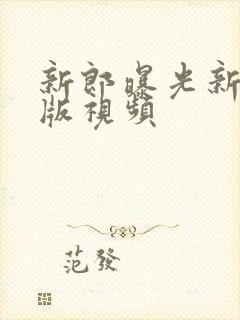 新郎曝光新
版視頻
范發